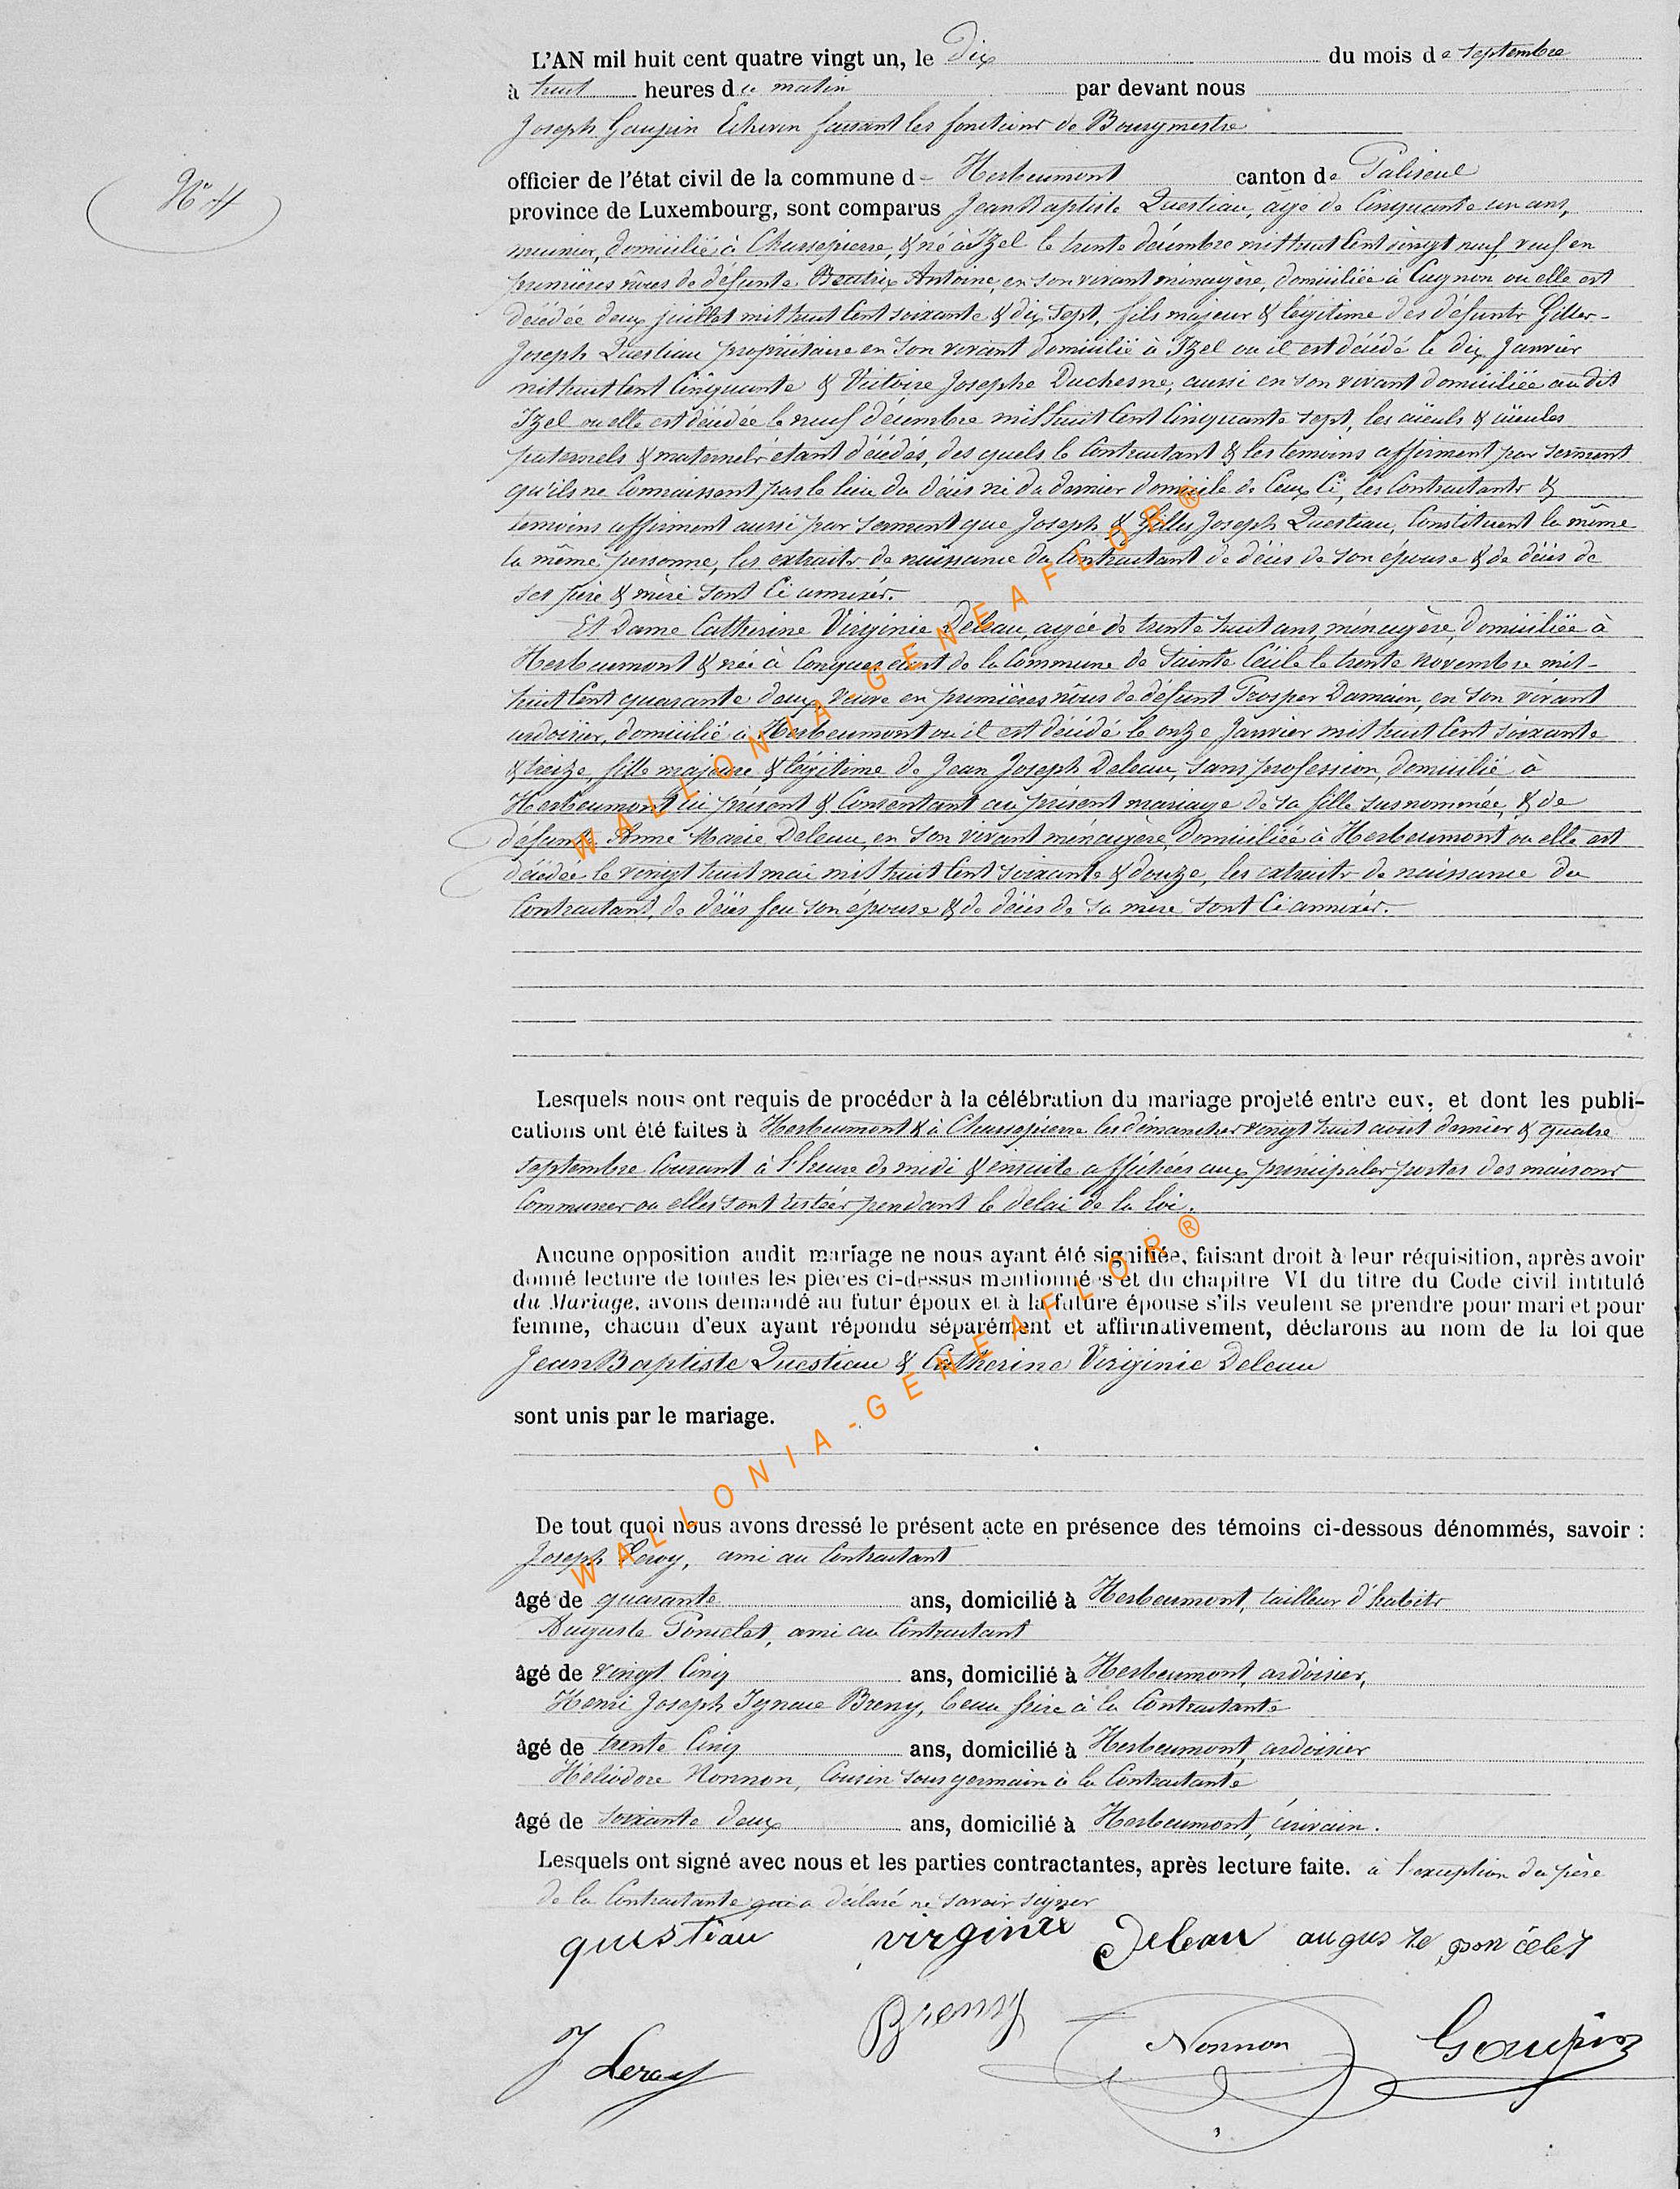 L'AN mil huit cent quatre vingt un, le Dix du mois de septembre
à huit heures du matin par devant nous
Joseph Goupin Echevin faisant les fonctions de Bourgmestre
N° 4
officier de l'état civil de la commune d'Herbeumont canton de Paliseul
province de Luxembourg, sont comparus Jean Baptiste Questiau, age de Cinquante un ans,
meunier, domicilié à Chassepierre, & né à Izel le trente décembre mil huit Cent vingt neuf, veuf en
premières nôces de défunte Béatrix Antoine, en son vivant ménagère, domiciliée à Cugnon ou elle est
décédée deux juillet mil huit Cent soixante & dix sept, fils majeur & légitime des défunts Gilles-
Joseph Questiau propriétaire en son vivant domicilié à Izel ou il est décédé le dix Janvier
mil huit Cent Cinquante & Victoire Josephe Duchesne, aussi en son vivant domiciliée au dit
Izel ou elle est décédée le neuf décembre mil huit Cent Cinquante sept, les aïeuls & aïeules
paternels & maternels étant décédés, des quels le Contractant & les témoins affirment par serment
qu'ils ne Connaissent pas le lieu du décès ni du dernier domicile de Ceux Ci, les Contractants &
témoins affirment aussi par serment que Joseph & Gilles Joseph Questiau, Constituent la même
la même personne, les extraits de naissance du Contractant de décès de son épouse & de décès de
ses père & mère sont Ci annexés.
Et Dame Catherine Virginie Deleau, agée de trente huit ans, ménagère, domiciliée à
Herbeumont & née à Conques dépt de la Commune de Sainte Cécile le trente novembre mil-
huit Cent quarante deux, veuve en premières nôces de défunt Prosper Damain, en son vivant
ardoisier, domicilié à Herbeumont ou il est décédé le onze Janvier mil huit Cent soixante
& treize, fille majeure & légitime de Jean Joseph Deleau, sans profession, domicilié à
Herbeumont ici présent & Consentant au présent mariage de sa fille susnommée, & de
défunte Anne Marie Deleau, en son vivant ménagère, domiciliée à Herbeumont ou elle est
décédée le vingt huit mai mil huit Cent soixante & douze, les extraits de naissance du
Contractant, de décès feu son épouse & de décès de sa mère sont Ci annexés.
Lesquels nous ont requis de procéder à la célébration du mariage projeté entre eux, et dont les publi-
cations ont été faites à Herbeumont & à Chassepierre les dimanches vingt huit août dernier & quatre
septembre Courant à l'heure de midi & ensuite affichées aux principales portes des maisons
Communes ou elles sont restées pendant le délai de la loi.
Aucune opposition audit mariage ne nous ayant été signifiée, faisant droit à leur réquisition, après avoir
donné lecture de toutes les pièces ci-dessus mentionnées et du chapitre VI du titre du Code civil intitulé
du Mariage, avons demandé au futur époux et à la future épouse s'ils veulent se prendre pour mari et pour
femme, chacun d'eux ayant répondu séparément et affirmativement, déclarons au nom de la loi que
Jean Baptiste Questiau & Catherine Virginie Deleau
sont unis par le mariage.
De tout quoi nous avons dressé le présent acte en présence des témoins ci-dessous dénommés, savoir :
Joseph Leroy, ami au Contractant
âgé de quarante ans, domicilié à Herbeumont, tailleur d'habits
Auguste Poncelet, ami au Contractant
âgé de vingt Cinq ans, domicilié à Herbeumont, ardoisier,
Henri Joseph Ignace Breny, beau frère à la Contractante
âgé de trente Cinq ans, domicilié à Herbeumont, ardoisier
Héliodore Nonnon, Cousin sous germain à la Contractante
âgé de soixante deux ans, domicilié à Herbeumont, écrivain.
Lesquels ont signé avec nous et les parties contractantes, après lecture faite. à l'exception du père
de la Contractante qui a déclaré ne savoir signer
questiau virginie Deleau auguste poncelet
J Leroy Breny Nonnon Goupin
WALLONIA-GENEAFLOR®
WALLONIA-GENEAFLOR®